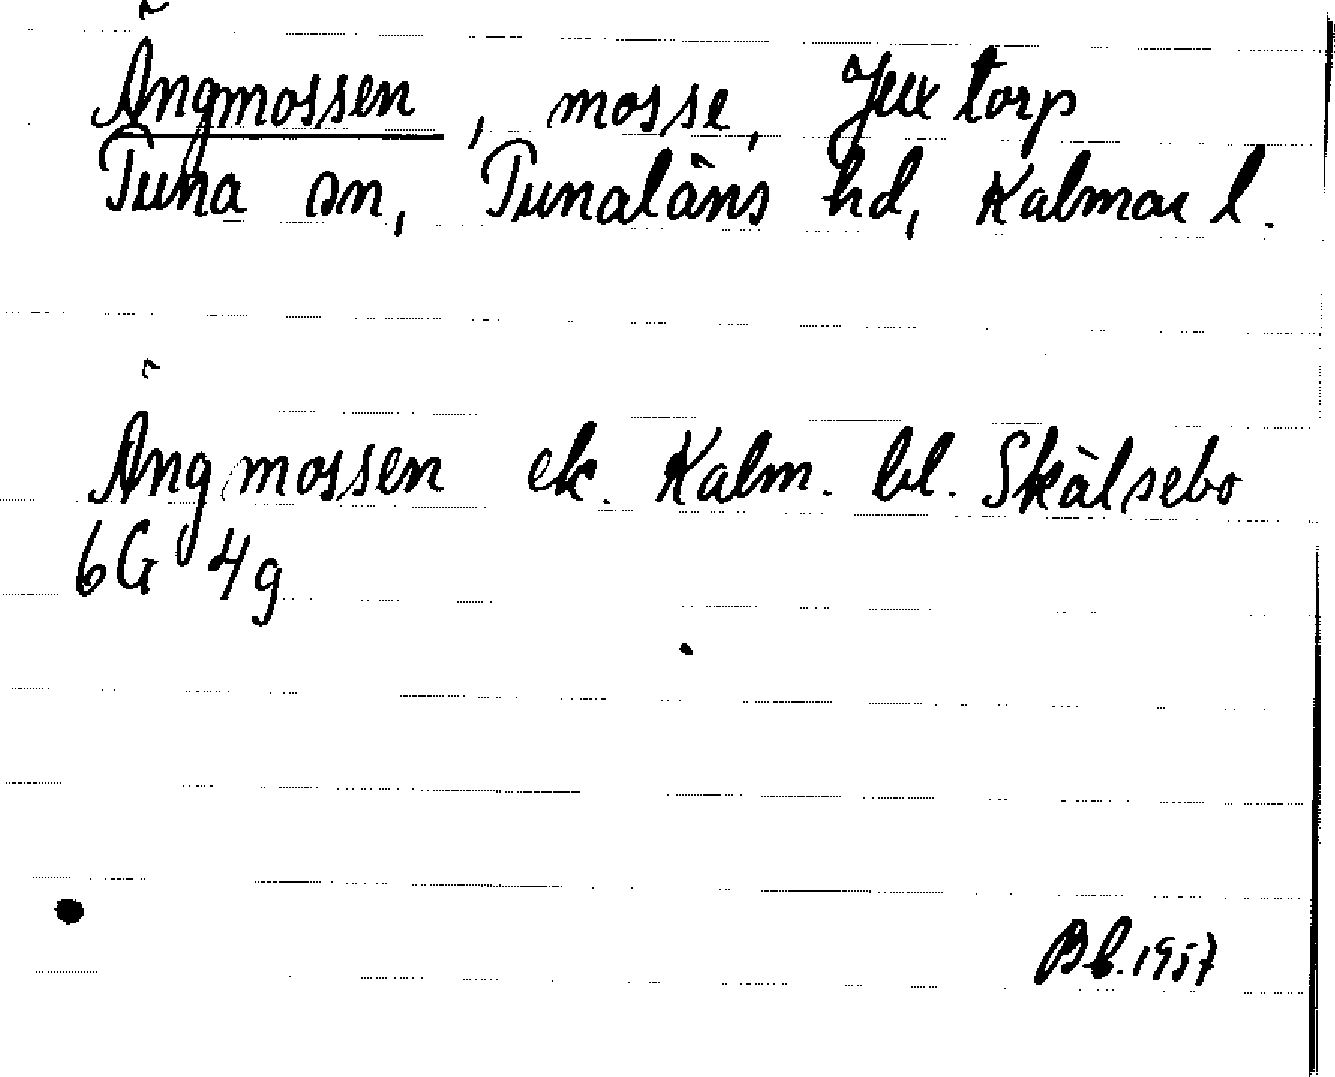 Ängmossen, mosse, Juxtorp
Tuna sn, Tunaläns hd, Kalmar l.
Ängmossen ek. Kalm. bl. Skälsebo
6G 4g
Bb. 1957